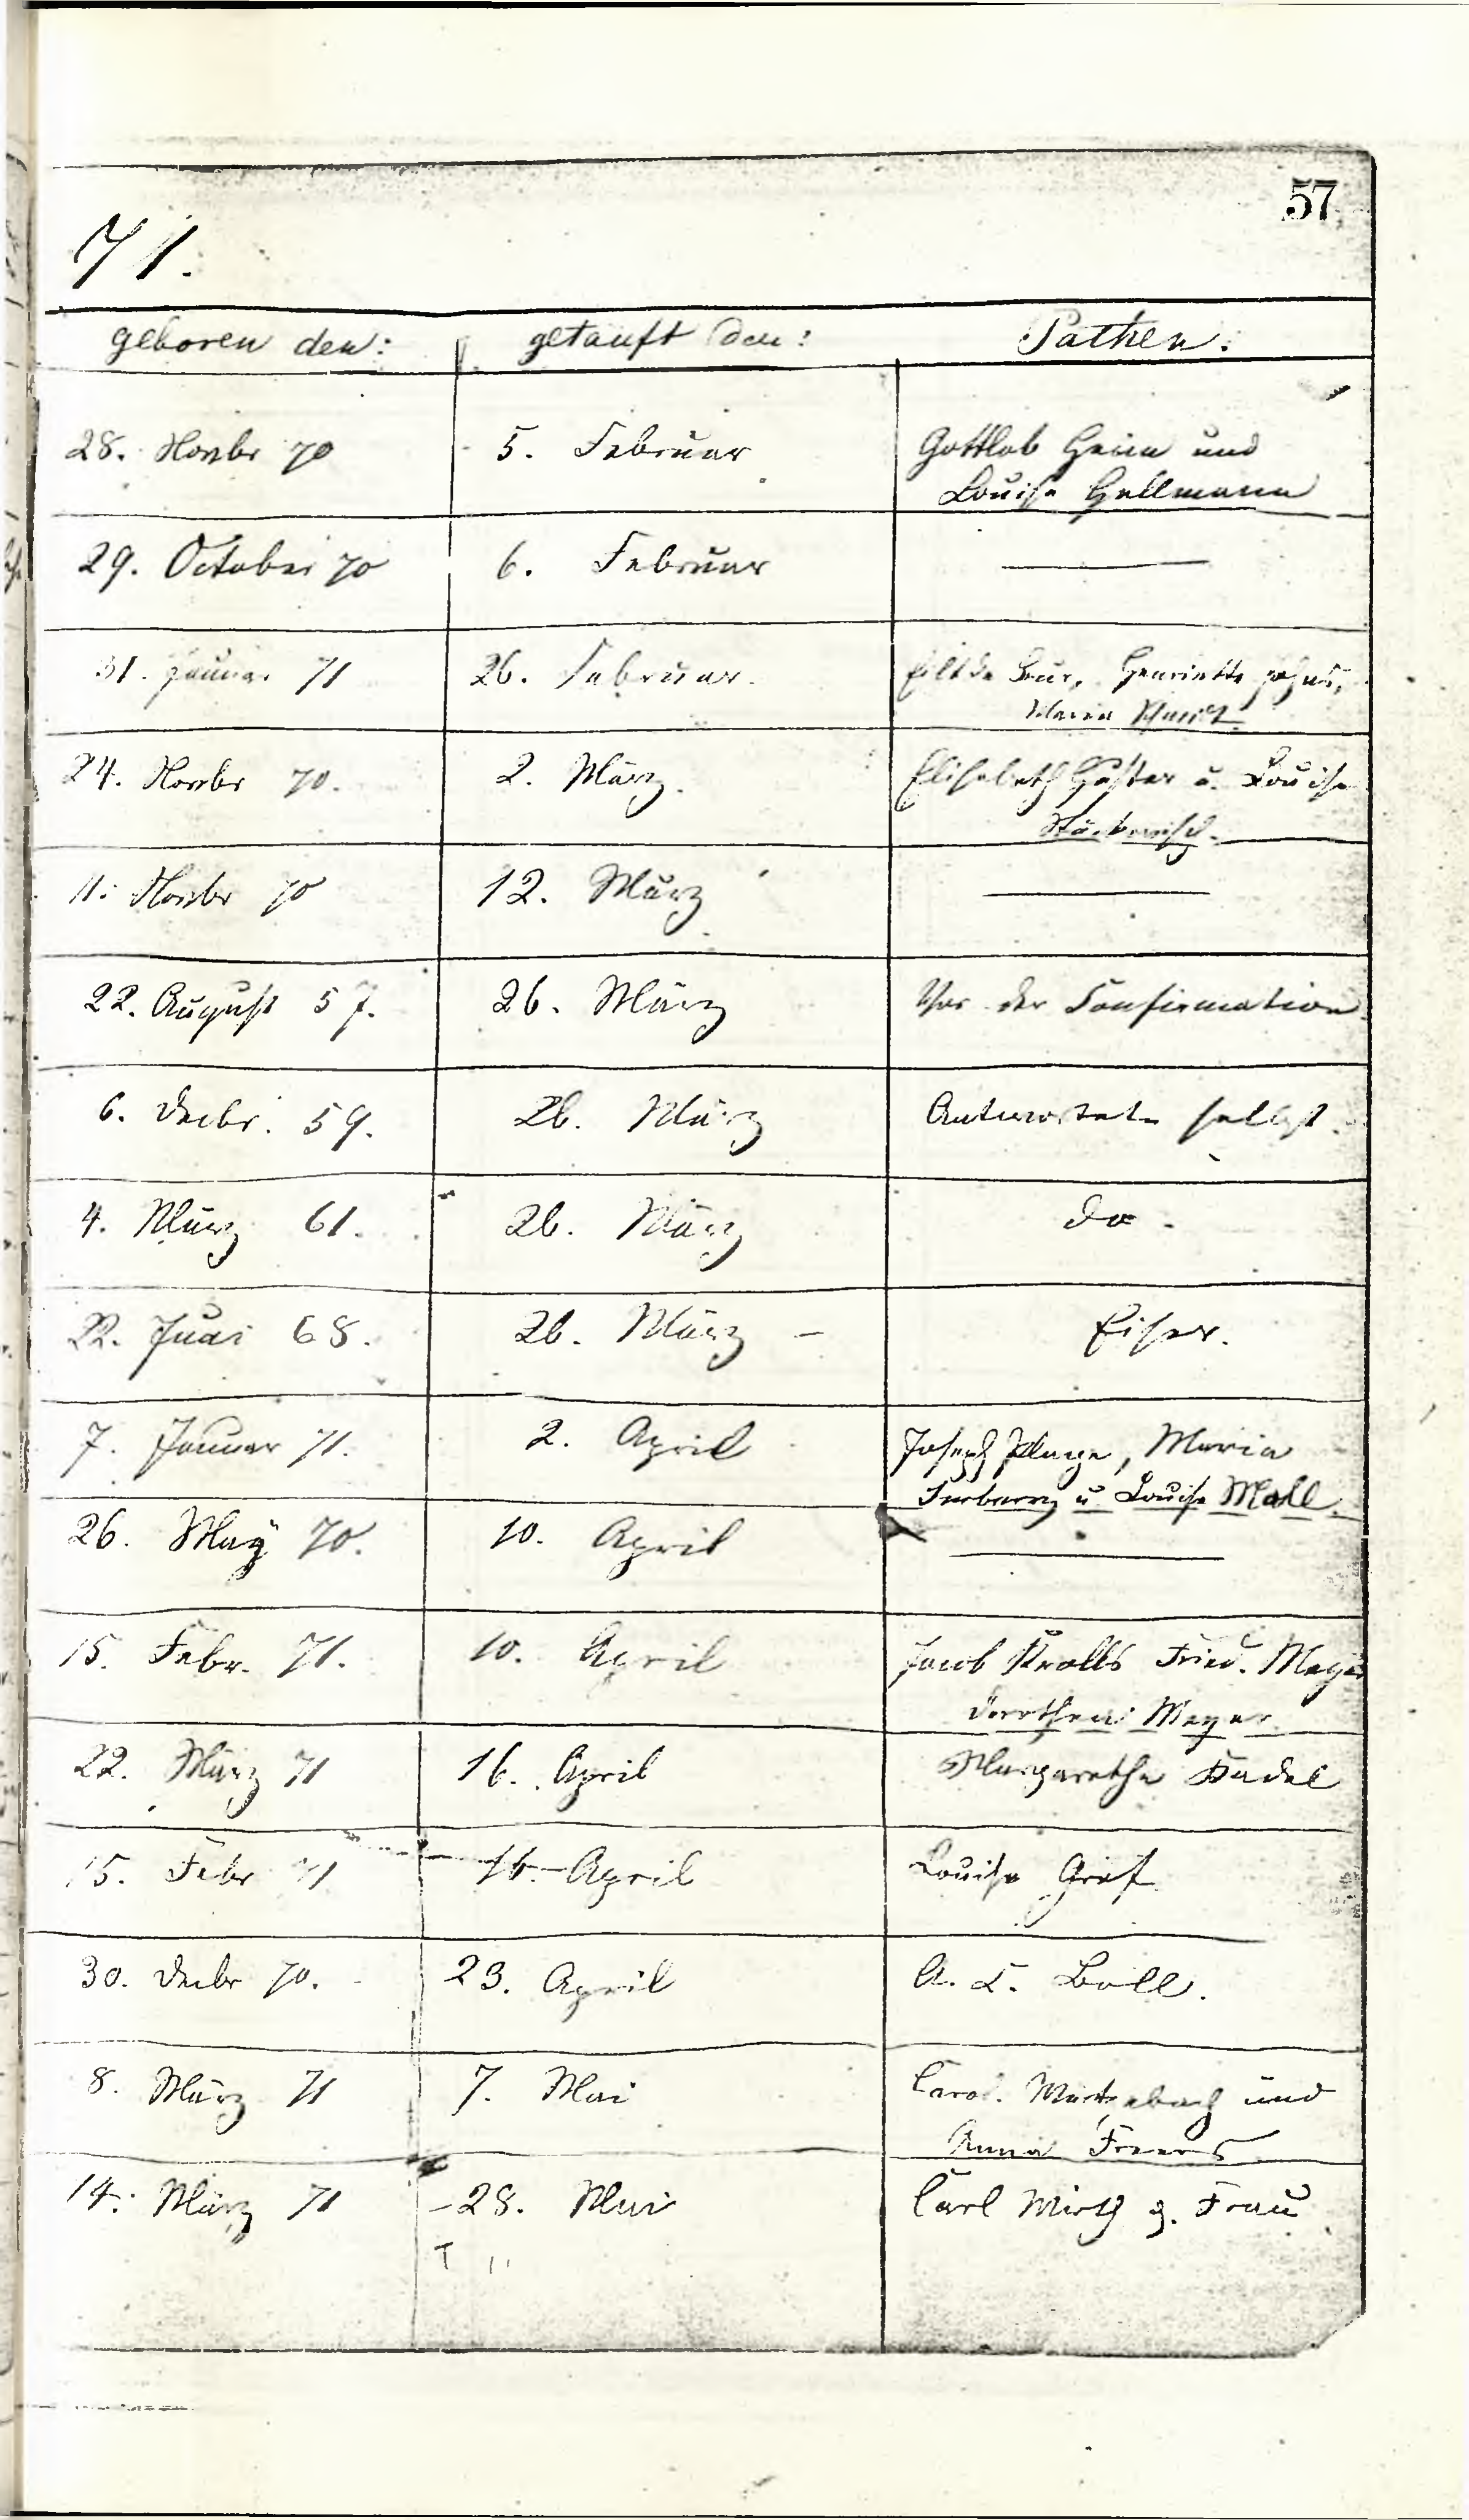 57
71.
geboren den: getauft den: Pathen:
28. Novbr 70 5. Februar Gottlob Heim und
Louise Hellmann
29. October 70 6. Februar
31. Januar 71 26. Februar. Henriette
Maria
24. Novbr 70. 2. März. Elisabeth u. Louise
11. Novbr 70 12. März
22. August 57. 26. März Vor der Confirmation
6. Decbr. 59. 26. März Antwortete selbst.
4. März 61. 26. März do.
22. Juni 68. 26. März
7. Januar 71. 2. April Joseph Plage, Maria
u. Louise Moll.
26. May 70. 10. April
15. Febr. 71. 10. April Jacob Kralls Fried. Meyer
Dorothea Meyer
22. März 71 16. April Margarethe Kadel
15. Febr 71 16. April Louise Graf
30. Decbr 70. 23. April A. L. Boll.
8. März 71 7. Mai Carol. und
Anna
14. März 71 28. Mai Carl Wirth & Frau